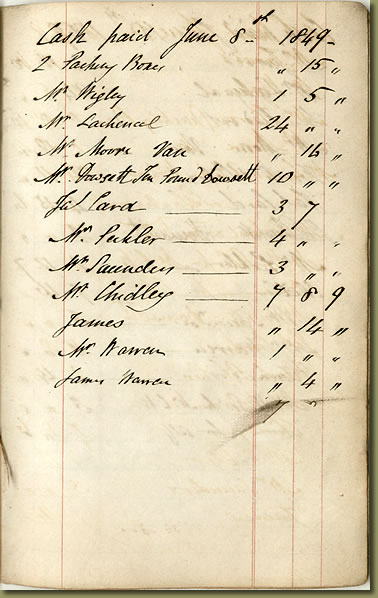 Cash paid June 8th 1849
2 Packing Boxes " 15 "
Mr. Wigley 1 5 "
Mr. Lachenal 24 " "
Mr. Moore Van " 16 "
Mr. Dowsett Ten Pound Dowsett 10 " "
Jas Card 3 7
Mr. Peckler 4 " "
Mr. Saunders 3 " "
Mr. Chidley 7 8 9
James " 14 "
Mr. Warren 1 " "
James Warren " 4 "